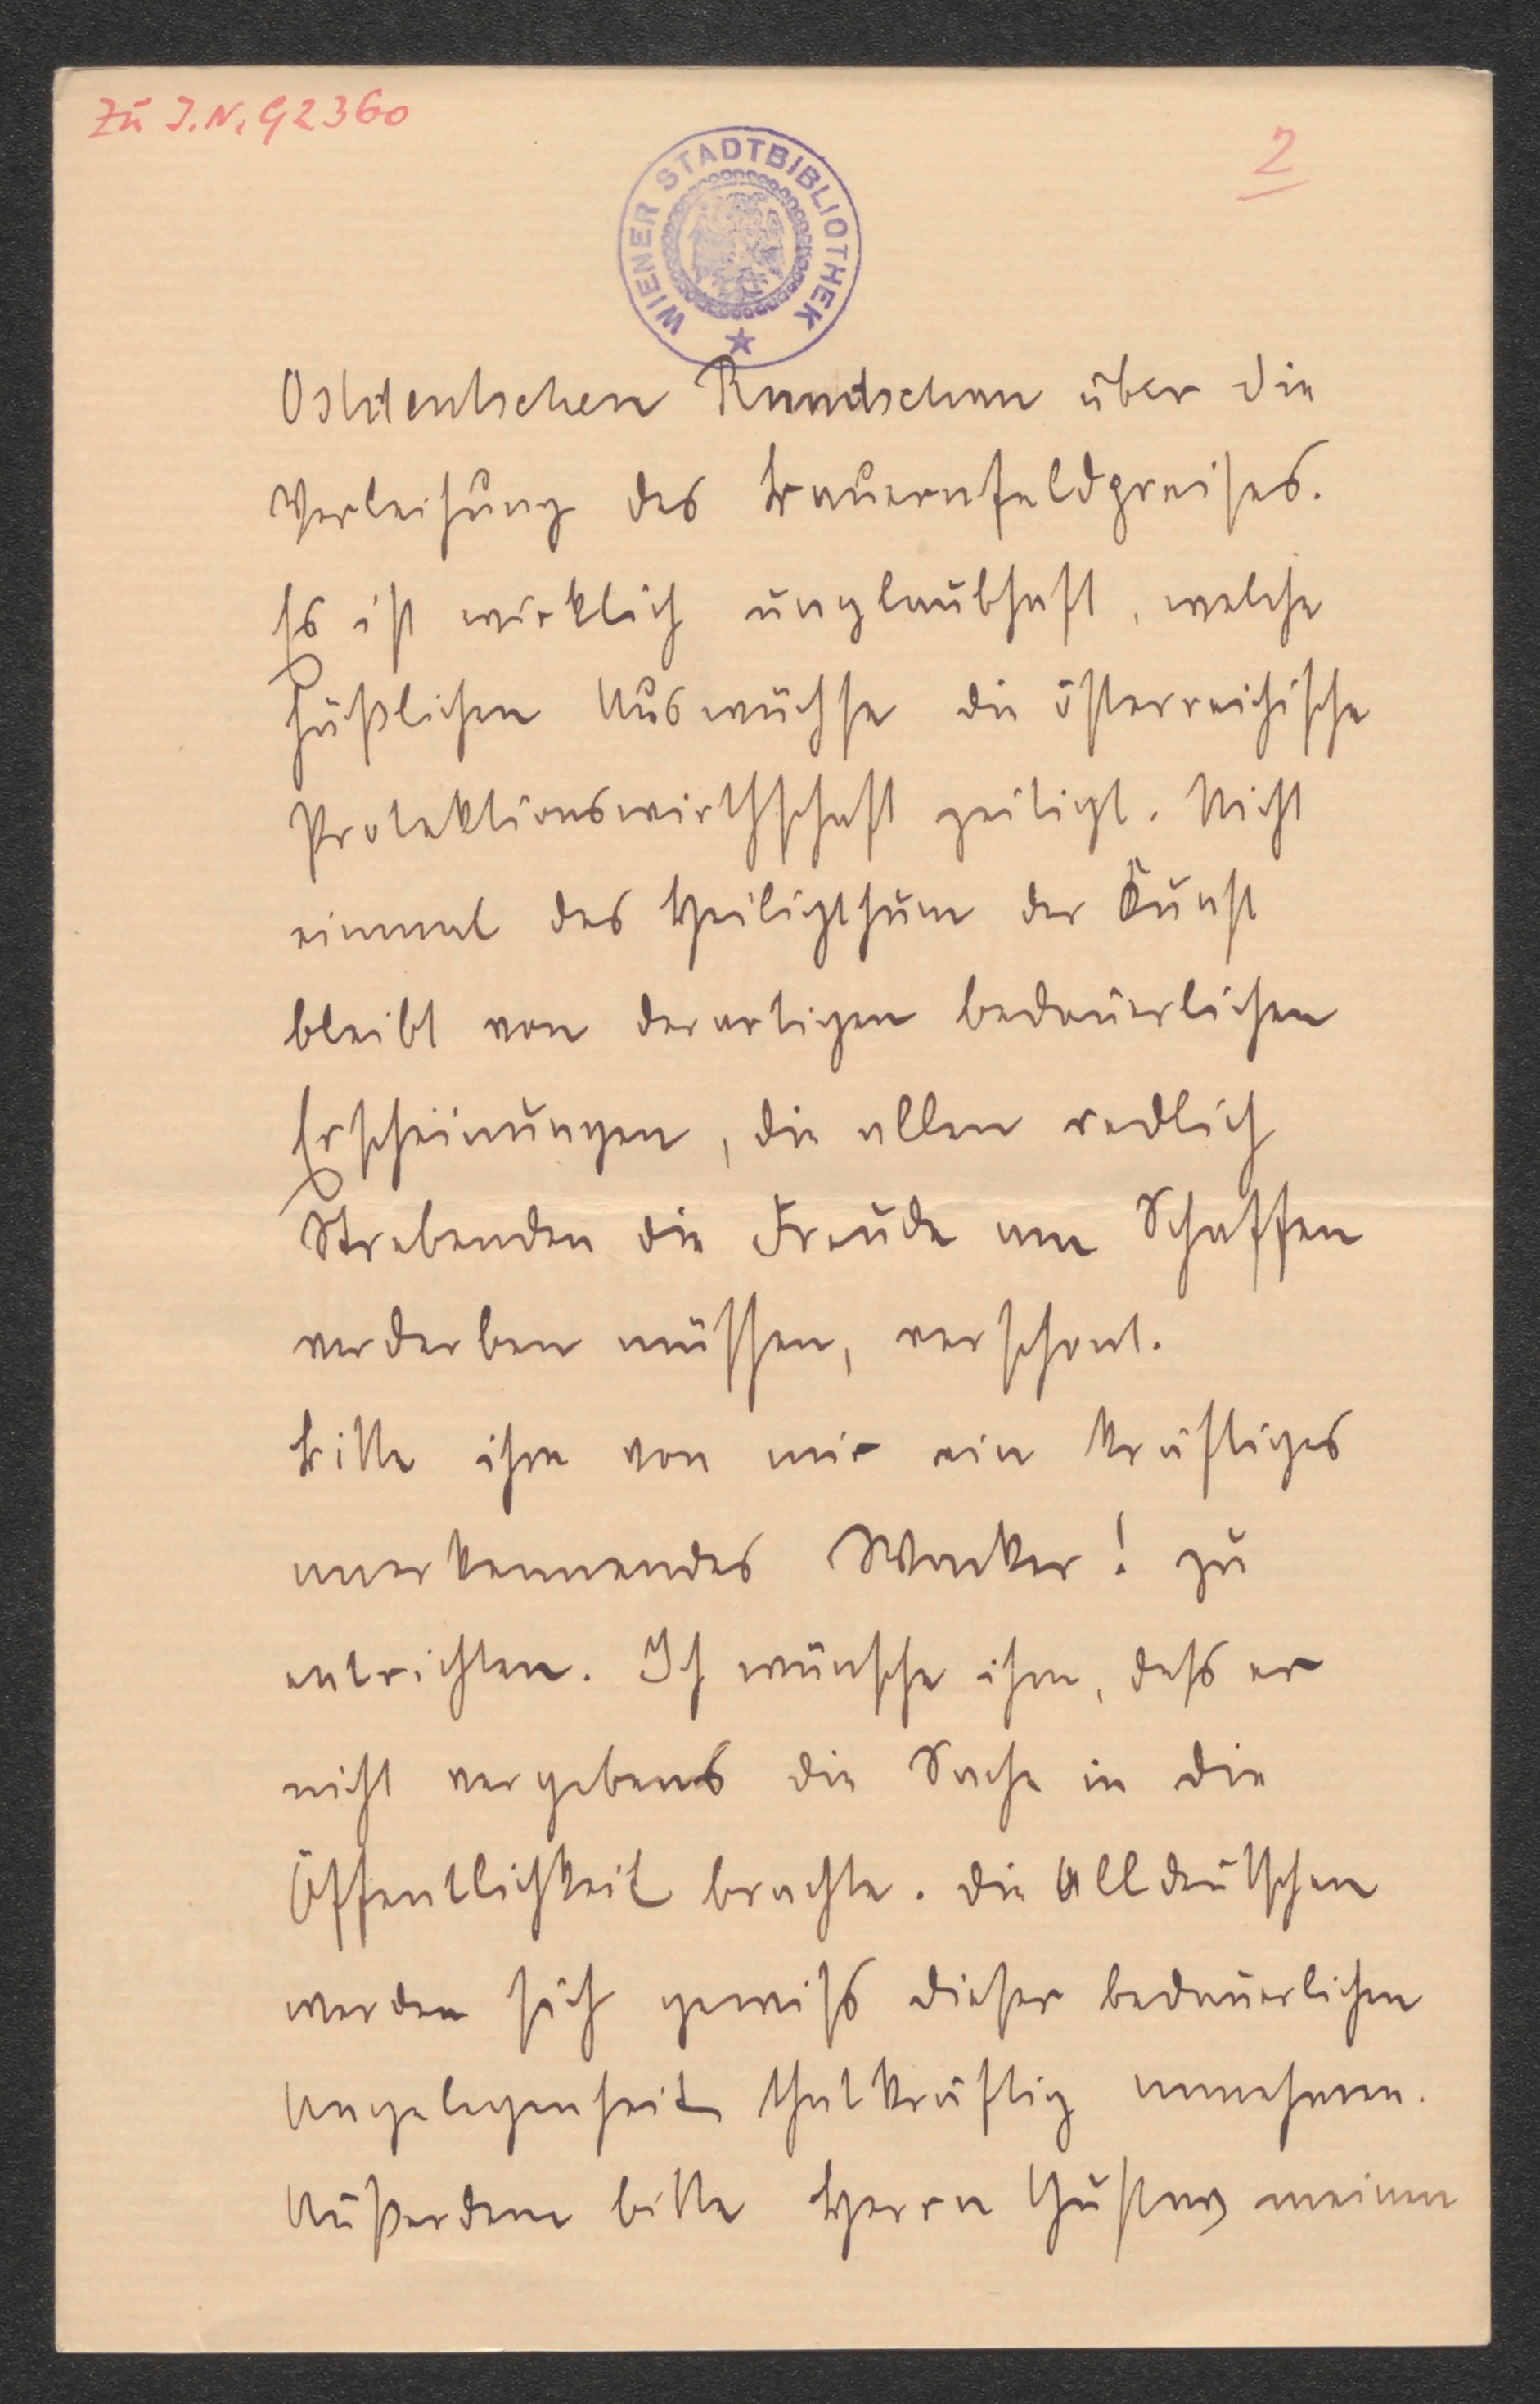 Zu I.N. 92360
2
WIENER STADTBIBLIOTHEK
Ostdeutschen Rundschau über die
Verleihung des Bauernfeldpreises.
Es ist wirklich unglaubhaft, welche
häßlichen Auswüchse die österreichische
Protektionswirthschaft zeitigt. Nicht
einmal das Heiligthum der Kunst
bleibt von derartigen bedauerlichen
Erscheinungen, die allen redlich
Strebenden die Freude am Schaffen
verderben müssen, verschont.
Bitte ihm von mir ein kräftiges
anerkennendes Wacker! zu
entrichten. Ich wünsche ihm, dass er
nicht vergebens die Sache in die
Öffentlichkeit brachte. Die Alldeutschen
werden sich gewiss dieser bedauerlichen
Angelegenheit thatkräftig annehmen.
Außerdem bitte Herrn Gustav meinen